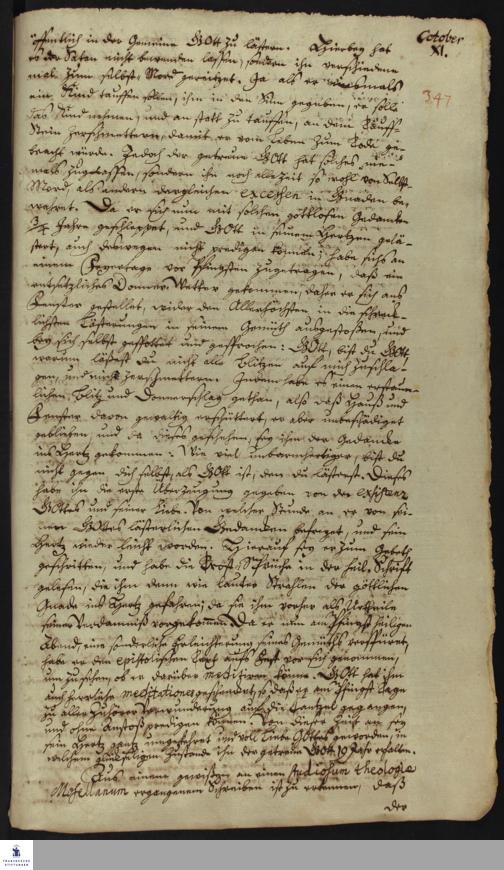 October
XI.
347
öffentlich in der Gemeine GOtt zu lästern. Hierbey hat
es der Satan nicht bewenden lassen, sondern ihn verschiedene
mal zum selbst-Mord gereitzet. Ja als er einsmals
ein Kind tauffen sollen, ihm in den Sinn gegeben, er solle
das Kind nehmen, und an statt zu tauffen, an dem Tauff-
Stein zerschmettern, damit er vom Leben zum Tode ge-
bracht würde. Jedoch der getreue GOtt hat solches nie-
mals zugelassen, sondern ihn noch allezeit so wohl von Selbst-
Mord, als andern dergleichen excessen in Gnaden be-
wahret. Da er sich nun mit solchen gottlosen Gedanken
3/4 Jahr geschleppet, und GOtt in seinem Hertzen gelä-
stert, auch deswegen nicht predigen können; habe sichs an
einem Feyertage vor Pfingsten zugetragen, daß ein
entsetzliches Donner-Wetter gekommen, daher er sich ans
Fenster gestellet, wider den Allerhöchsten in die schreck-
lichsten Lästerungen in seinem Gemüth ausgestoßen, und
bey sich selbst gespottet und gesprochen: GOtt, bist du GOtt
warum lässest du nicht alle Blitzen auf mich zuschla-
gen, und mich zerschmettern. Indem habe es einen erstaun-
lichen Blitz und Donnerschlag gethan, also daß Hauß und
Fenster davon gewaltig erschüttert, er aber unbeschädiget
geblieben, und da dieses geschehen, sey ihm der Gedancke
ins Hertz gekommen: Wie viel unbarmhertziger bist du
nicht gegen dich selbst, als GOtt ist, den du lästerst. Dieses
habe ihm die erste Uberzeugung gegeben von der existenz
GOttes und seiner Liebe. Von welcher Stunde an er von sei-
nen GOttes lästerlichen Gedancken befreyet, und sein
Hertz wieder leicht worden. Hierauf sey er zum Gebeth
geschritten, und habe die Trost-Sprüche in der heil. Schrift
gelesen, die ihm dann wie lauter Strahlen der göttlichen
Gnade ins Hertz gefahren; da sie ihm vorher als Urtheile
seiner Verdamniß vorgekommen. Da er nun am Pfingst heiligen
Abend, eine sonderliche Erleichterung seines Gemüths verspüret,
habe er den epistolischen Text aufs Fest vor sich genommen,
um zu sehen, ob er darüber meditiren könne. GOtt hat ihm
auch herrliche meditationes geschencket, so daß er am Pfingst-Tage
zu aller Zuhörer Verwunderung auf die Cantzel gegangen,
und ohne Anstoß predigen können. Von dieser Zeit an sey
sein Hertz gantz umgekehrt und voll Liebe GOttes geworden, in
welchem glückseligen Zustande ihn der getreue GOtt 19 Jahr erhalten.
Aus einem gewissen an einen studiosum theologiæ
Mosellanum ergangenem Schreiben ist zu erkennen, daß
der